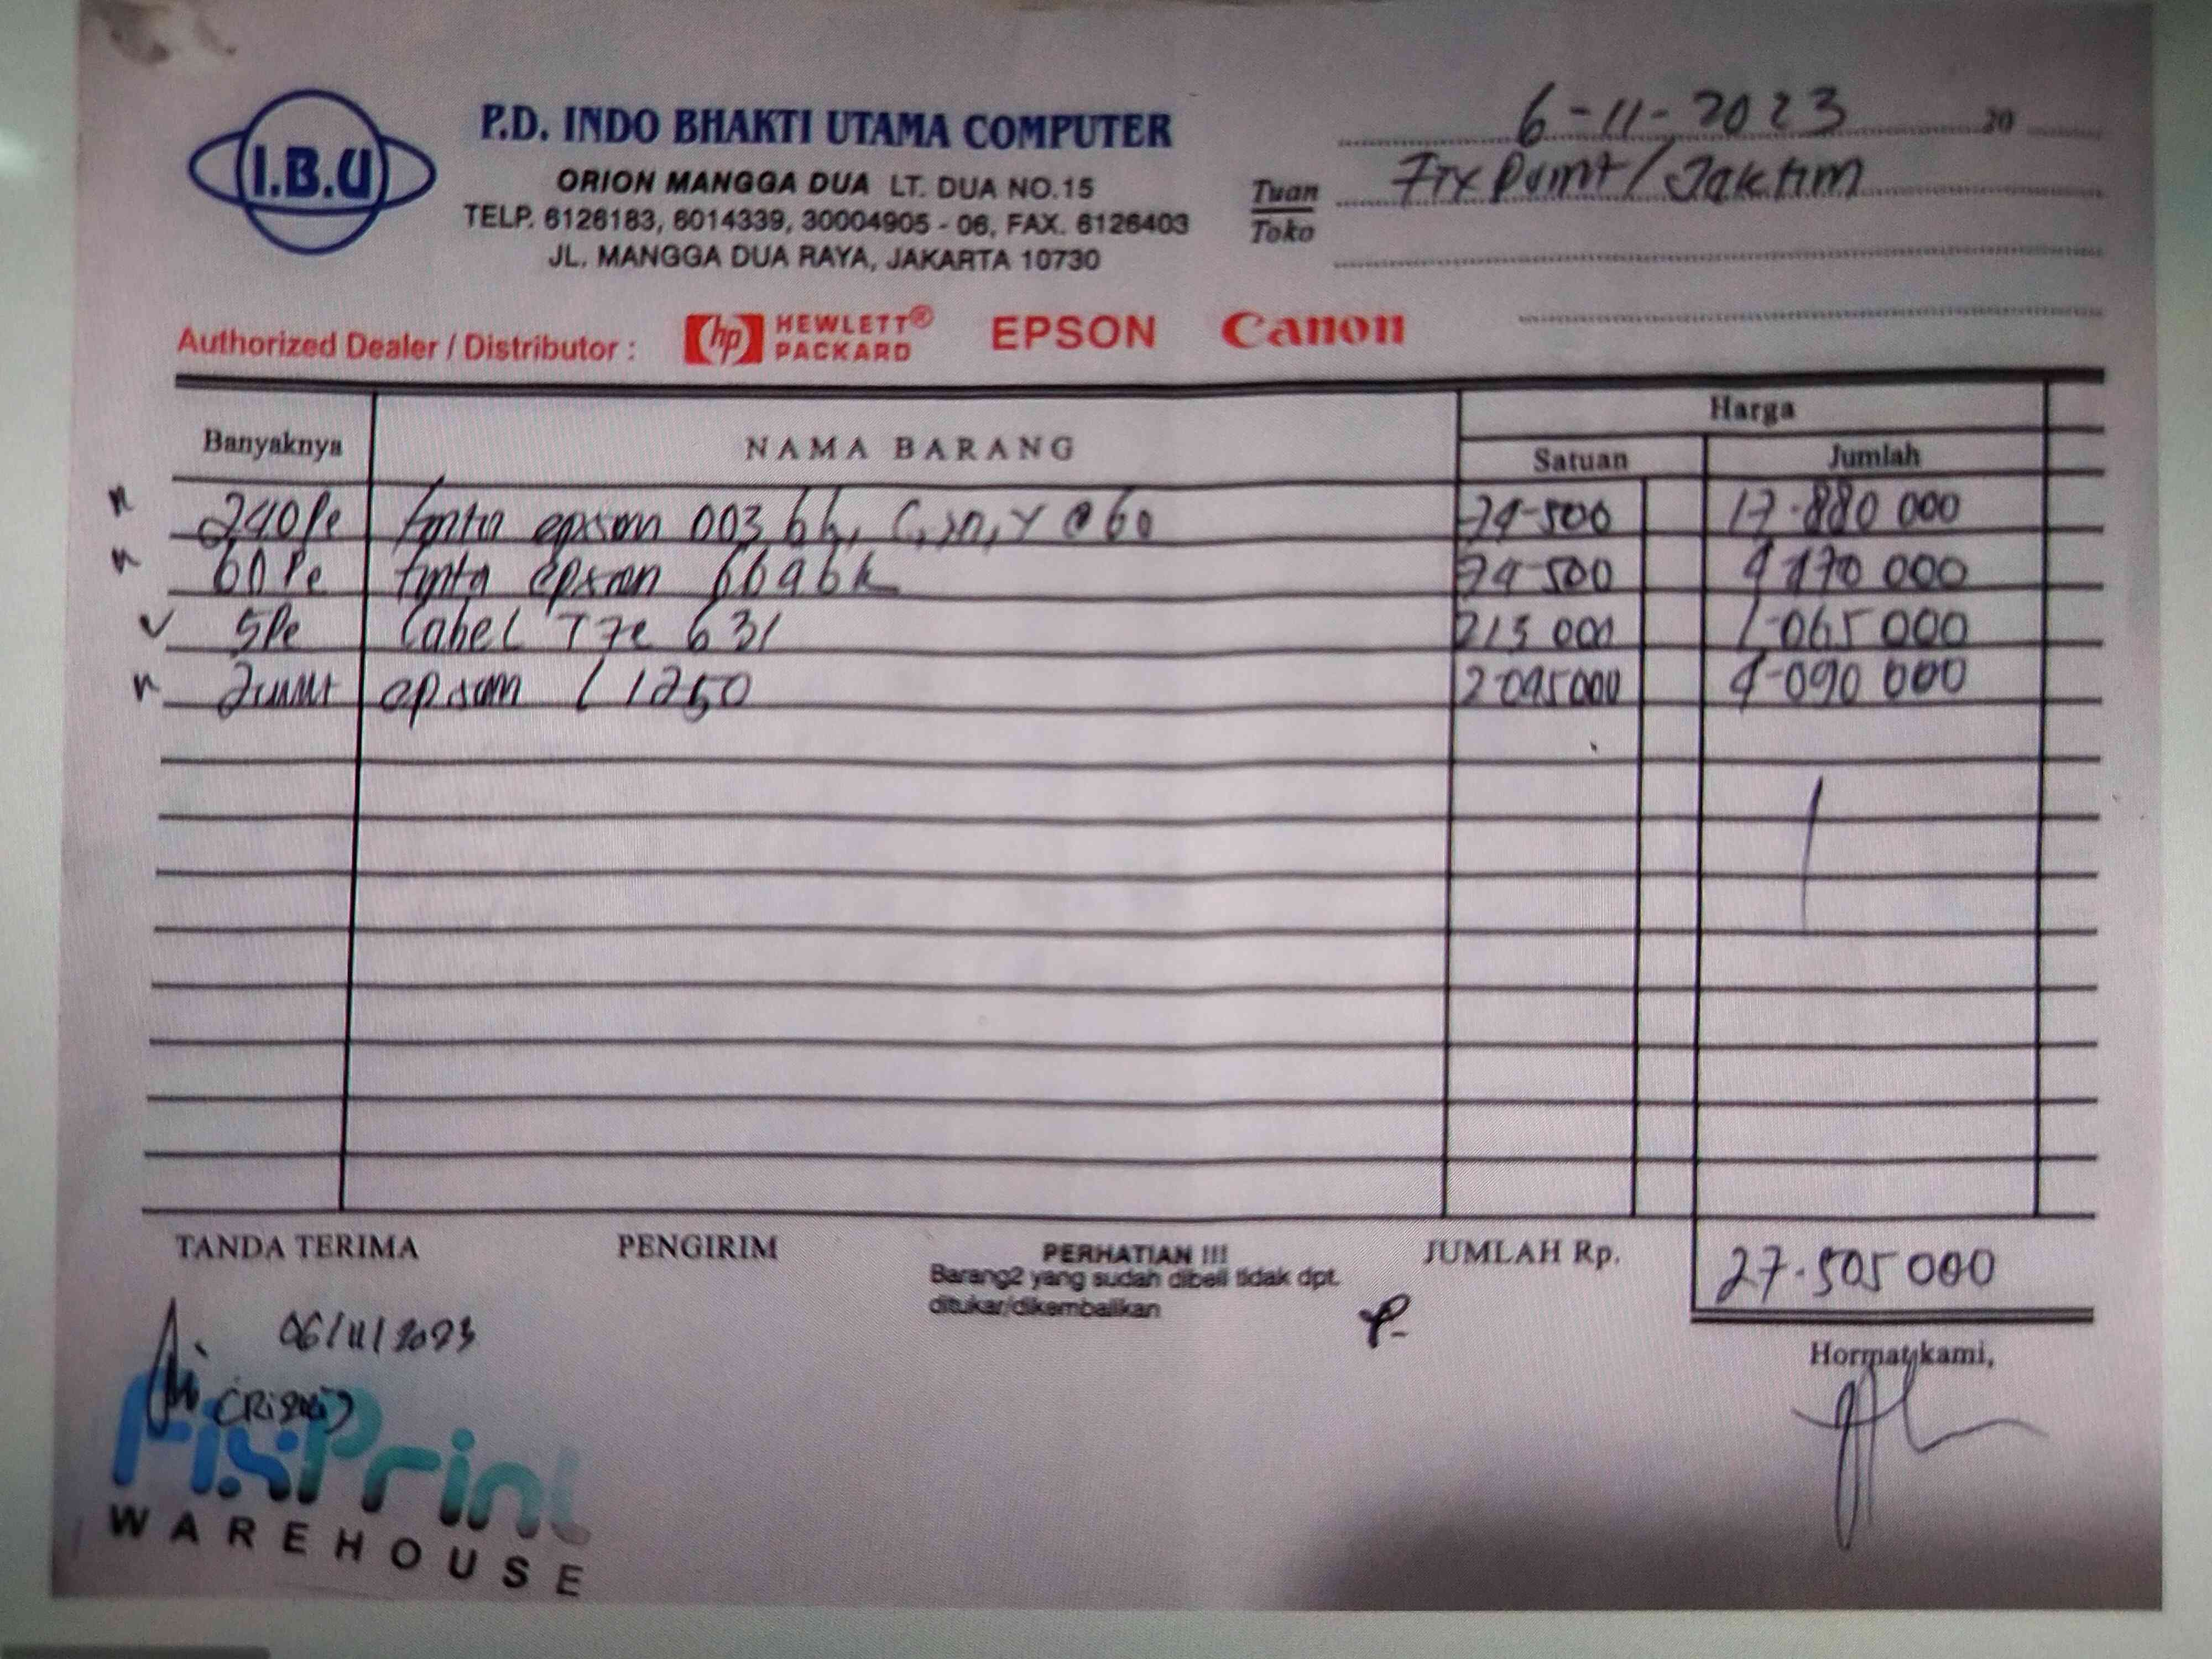 I.B.U
P.D. INDO BHAKTI UTAMA COMPUTER
ORION MANGGA DUA LT. DUA NO.15
TELP. 6126183, 6014339, 30004905 - 06, FAX. 6126403
JL. MANGGA DUA RAYA, JAKARTA 10730
6-11-2023 20
Tuan
Toko
Fix Print / Jaktim
Authorized Dealer / Distributor : hp HEWLETT® PACKARD EPSON Canon
Banyaknya NAMA BARANG Harga
Satuan Jumlah
240 Pc tinta epson 003 bk, C, m, Y @ 60 74-500 17.880 000
60 Pc tinta epson 664 bk 74 500 4 470 000
5 Pc label Tze 631 213 000 1-065 000
2 unit epson L 1250 2 045 000 4-090 000
TANDA TERIMA PENGIRIM
PERHATIAN !!!
Barang2 yang sudah dibeli tidak dpt.
ditukar/dikembalikan
JUMLAH Rp. 27.505 000
Hormat kami,
06/11/2023
FixPrint
WAREHOUSE